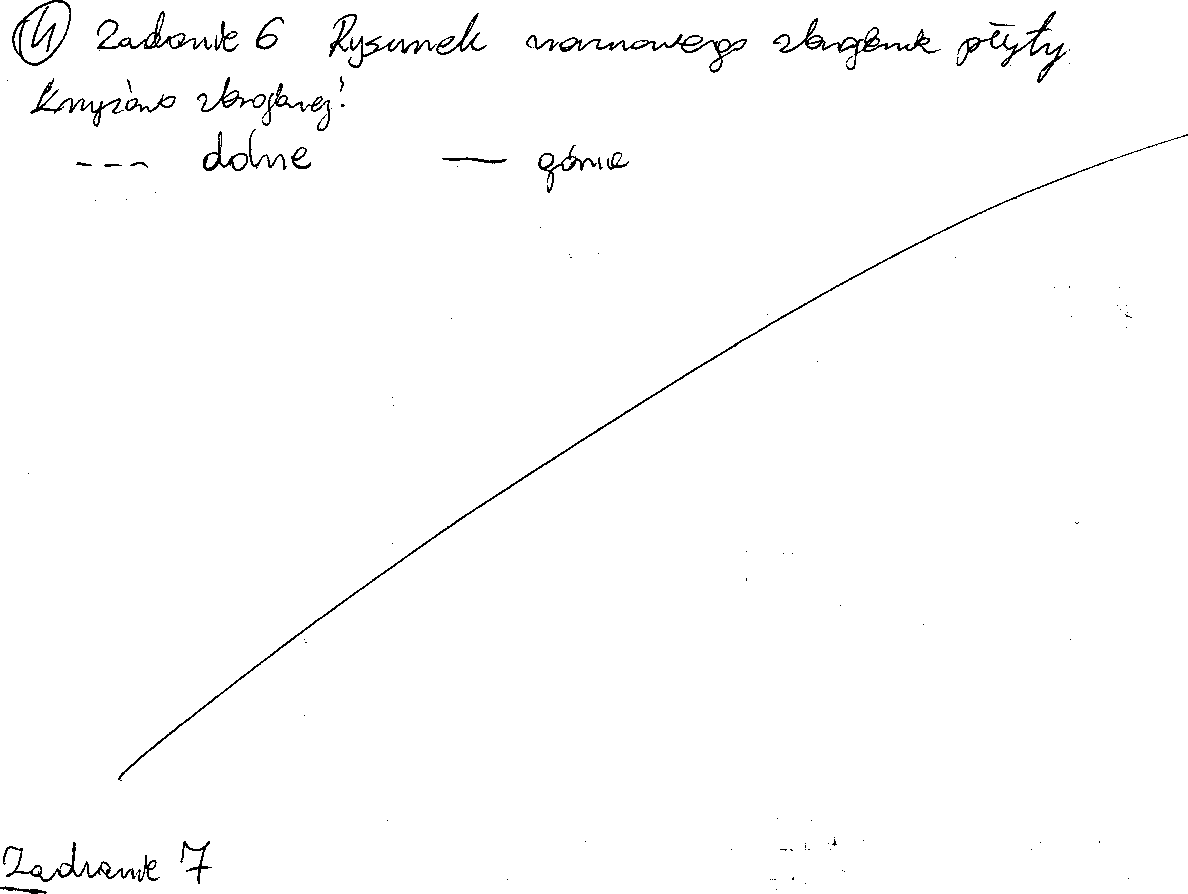 ④ Zadanie 6 Rysunek warunowego zbrojenia płyty
krzyżowo zbrojonej!
--- dolne — górne
Zadanie 7